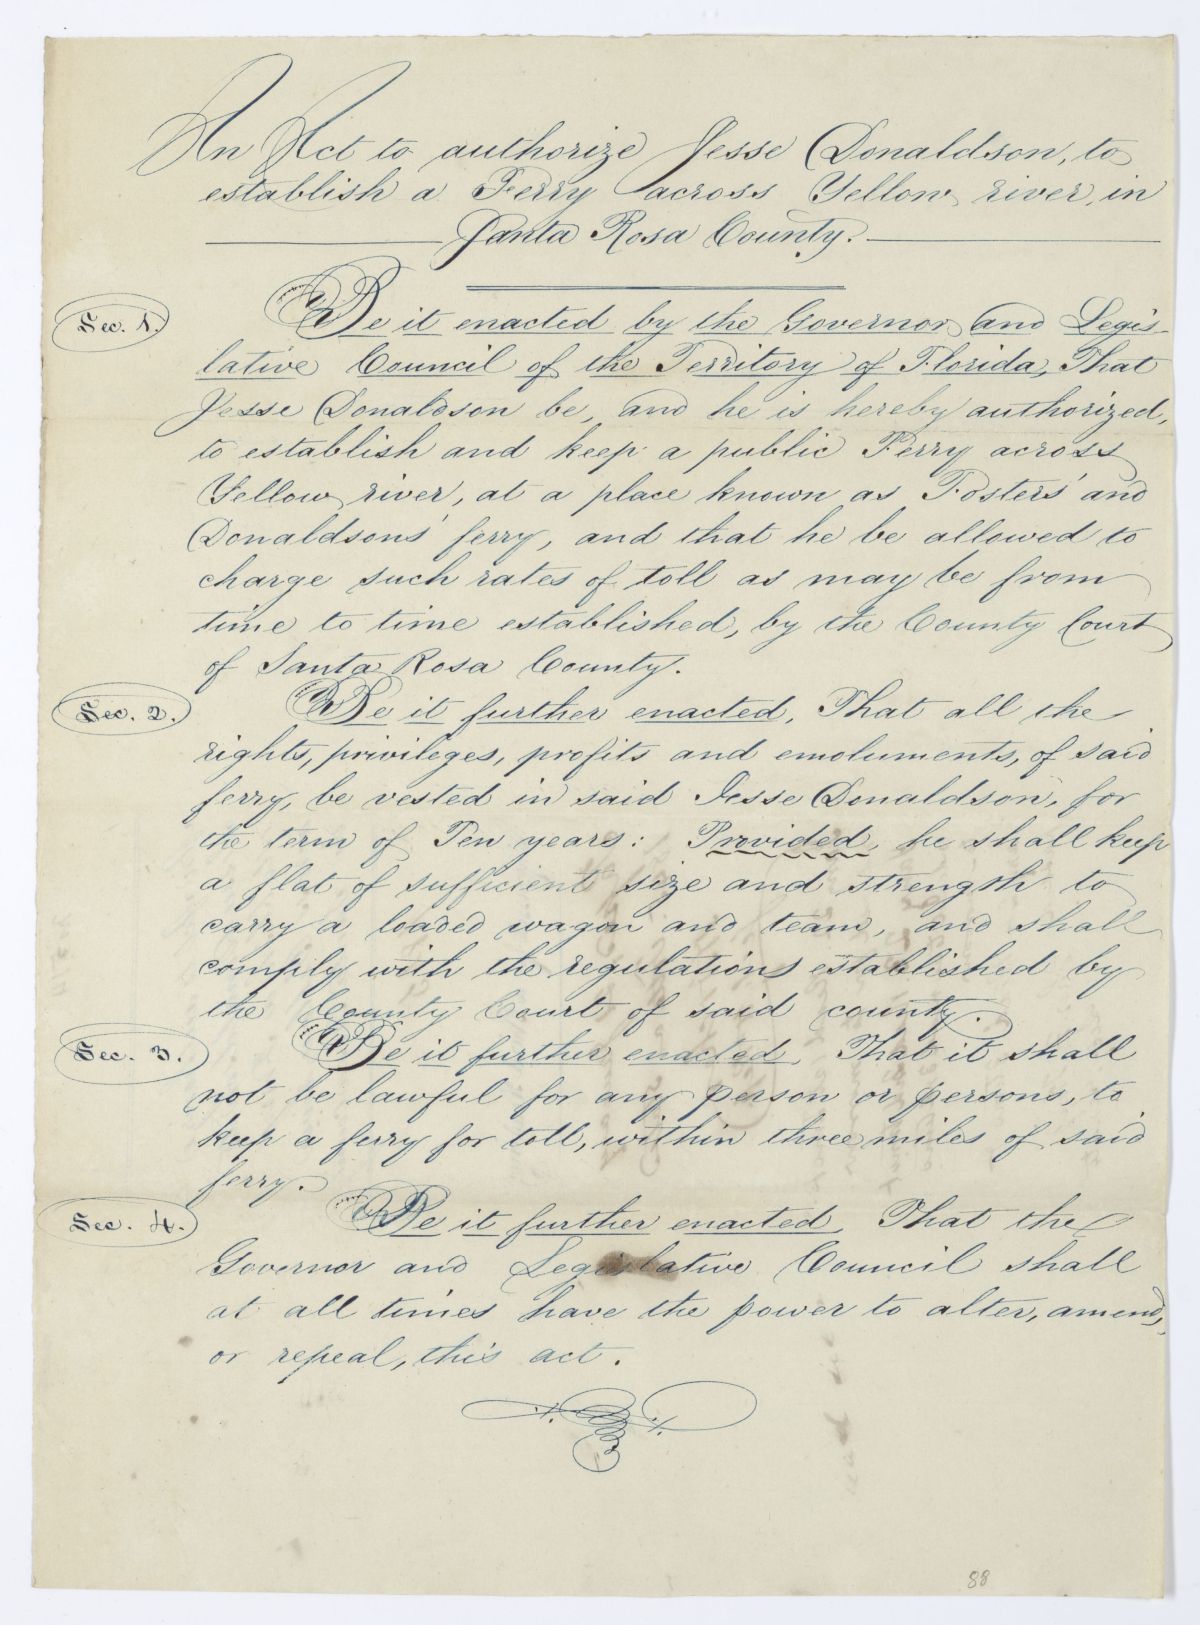 An Act to authorize Jesse Donaldson, to
establish a Ferry across Yellow river, in
Santa Rosa County.
Sec. 1. Be it enacted by the Governor and Legis-
lative Council of the Territory of Florida, That
Jesse Donaldson be, and he is hereby authorized,
to establish and keep a public Ferry across
Yellow river, at a place known as Fosters' and
Donaldsons' ferry, and that he be allowed to
charge such rates of toll as may be from
time to time established, by the County Court
of Santa Rosa County.
Sec. 2. Be it further enacted, That all the
rights, privileges, profits and emoluments, of said
ferry, be vested in said Jesse Donaldson, for
the term of Ten years: Provided, he shall keep
a flat of sufficient size and strength to
carry a loaded wagon and team, and shall
comply with the regulations established by
the County Court of said county.
Sec. 3. Be it further enacted, That it shall
not be lawful for any person or persons, to
keep a ferry for toll, within three miles of said
ferry.
Sec. 4. Be it further enacted, That the
Governor and Legislative Council shall
at all times have the power to alter, amend,
or repeal, this act.
88